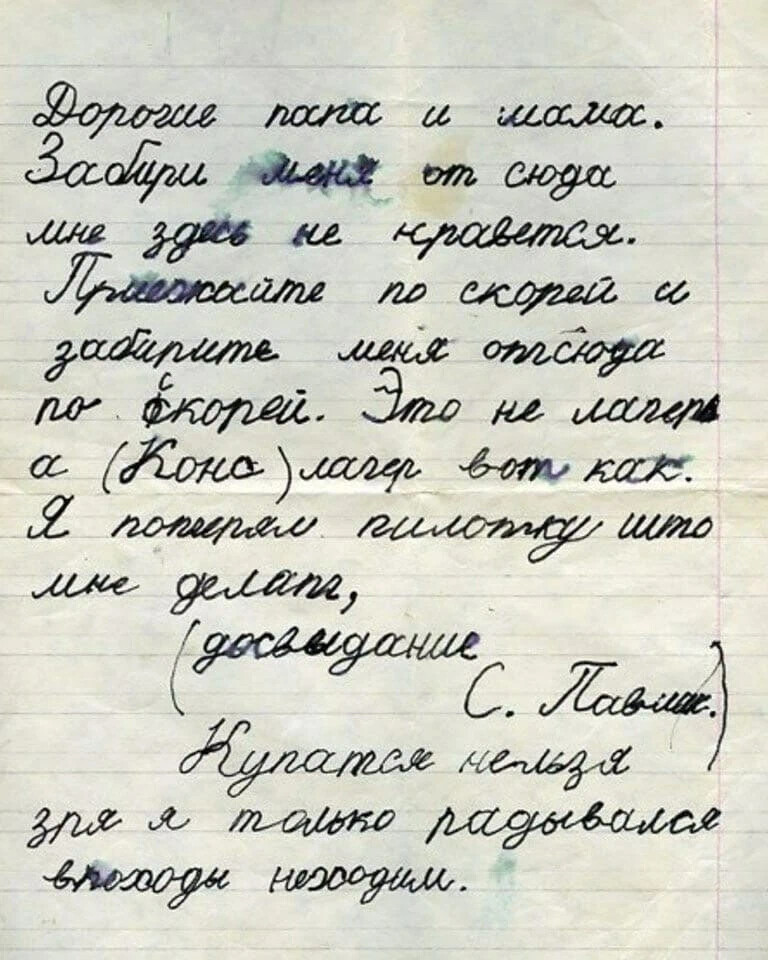 Дорогие папа и мама.
Забири меня от сюда
мне здесь не нраветса.
Приезжайте по скорей и
забирите меня отсюда
по скорей. Это не лагерь
а (Конс) лагер вот как.
Я потерял пилотку што
мне делать,
(досвыдание
С. Павлик.)
Купатся нельзя
зря я только радывался
впоходы неходим.